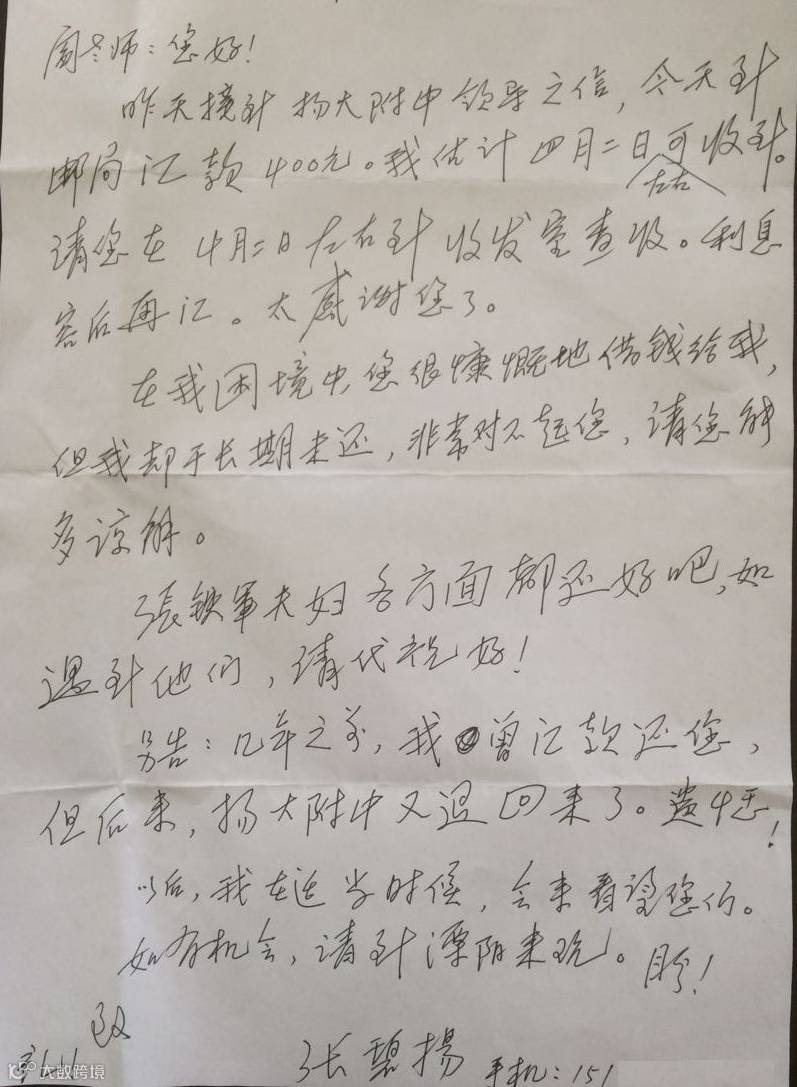 周老师：您好！
昨天接到扬大附中领导之信，今天到
邮局汇款400元。我估计四月二日左右可收到。
请您在4月二日左右到收发室查收。利息
容后再汇。太感谢您了。
在我困境中，您很慷慨地借钱给我，
但我却于长期未还，非常对不起您，请您能
多谅解。
張铁軍夫妇各方面都还好吧，如
遇到他们，请代祝好！
另告：几年之前，我曾汇款还您，
但后来，扬大附中又退回来了。遗憾！
以后，我在适当时候，会来看望您们。
如有机会，请到溧阳来玩。盼！
致
张碧揚 手机：151
大数跨境